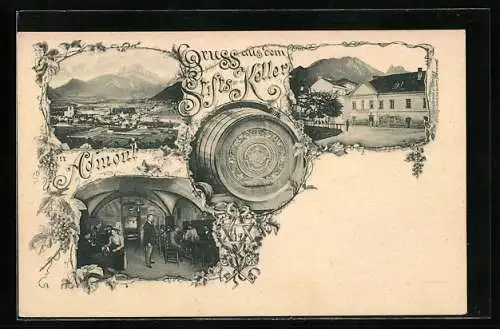 Gruss aus dem
Stifts-Keller
in Admont